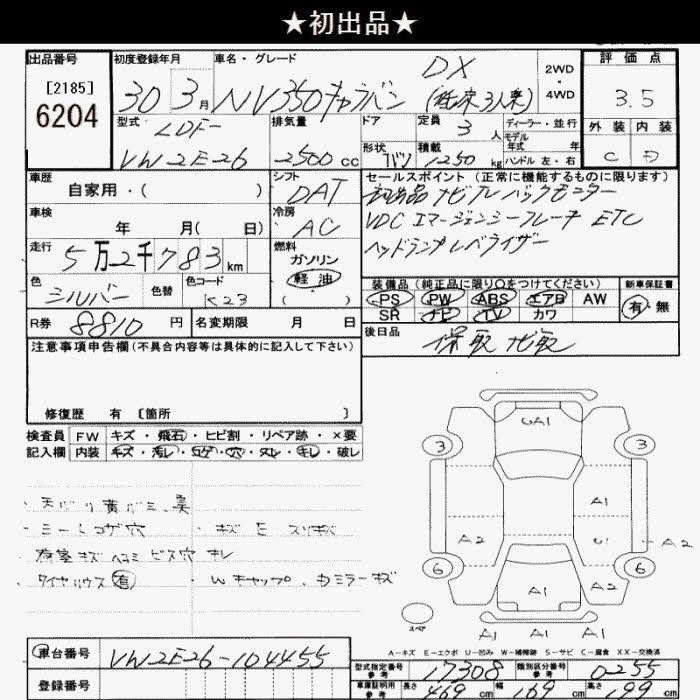 ★初出品★
出品番号
[2185]
6204
初度登録年月
30 3月
車名・グレード
NV350キャラバン
DX
(低床3人乗)
2WD
・
4WD
評価点
3.5
型式
LDF-
VW2E26
排気量
2500cc
ドア
形状 バン
定員 3人
積載 1250kg
ディーラー・並行
モデル年式 年
ハンドル 左・右
外装 内装
C D
車歴
自家用・( )
シフト
DAT
セールスポイント (正常に機能するものに限ります)
初出品 ナビTV バックモニター
VDC エマージェンシーブレーキ ETC
ヘッドランプレベライザー
車検
年 月( 日)
冷房
AC
走行
5万2千783km
燃料
ガソリン
軽油
( )
色
シルバー
色替
色コード
K23
装備品 (純正品に限り○をつけてください)
PS PW ABS エアB AW
SR ナビ TV カワ
新車保証書
有・無
R券 8810円
名変期限 月 日
後日品
保取 ナビ取
注意事項申告欄 (不具合内容等は具体的に記入して下さい)
修復歴 有 [箇所 ]
検査員記入欄
FW キズ・飛石・ヒビ割・リペア跡・×要
内装 キズ・汚レ・コゲ・穴・スレ・キレ・破レ
・天バリ 黄バミ、臭
・シートコゲ穴 ・キズ E スリキズ
荷室キズ ヘコミ ビス穴 キレ
・タイヤハウス 有 ・Wキャップ、カミラーキズ
GA1
3 3
A1
A2 U1 A2
6 6
A1 A1
スペア
A1 A1 A1
A-キズ E-エクボ U-凹み W-補修跡 S-サビ C-腐食 XX-交換済
車台番号 VW2E26-104455
登録番号
型式指定番号 参考 17308
類別区分番号 参考 0255
車庫証明用 参考 長さ 469cm 幅 169cm 高さ 199cm